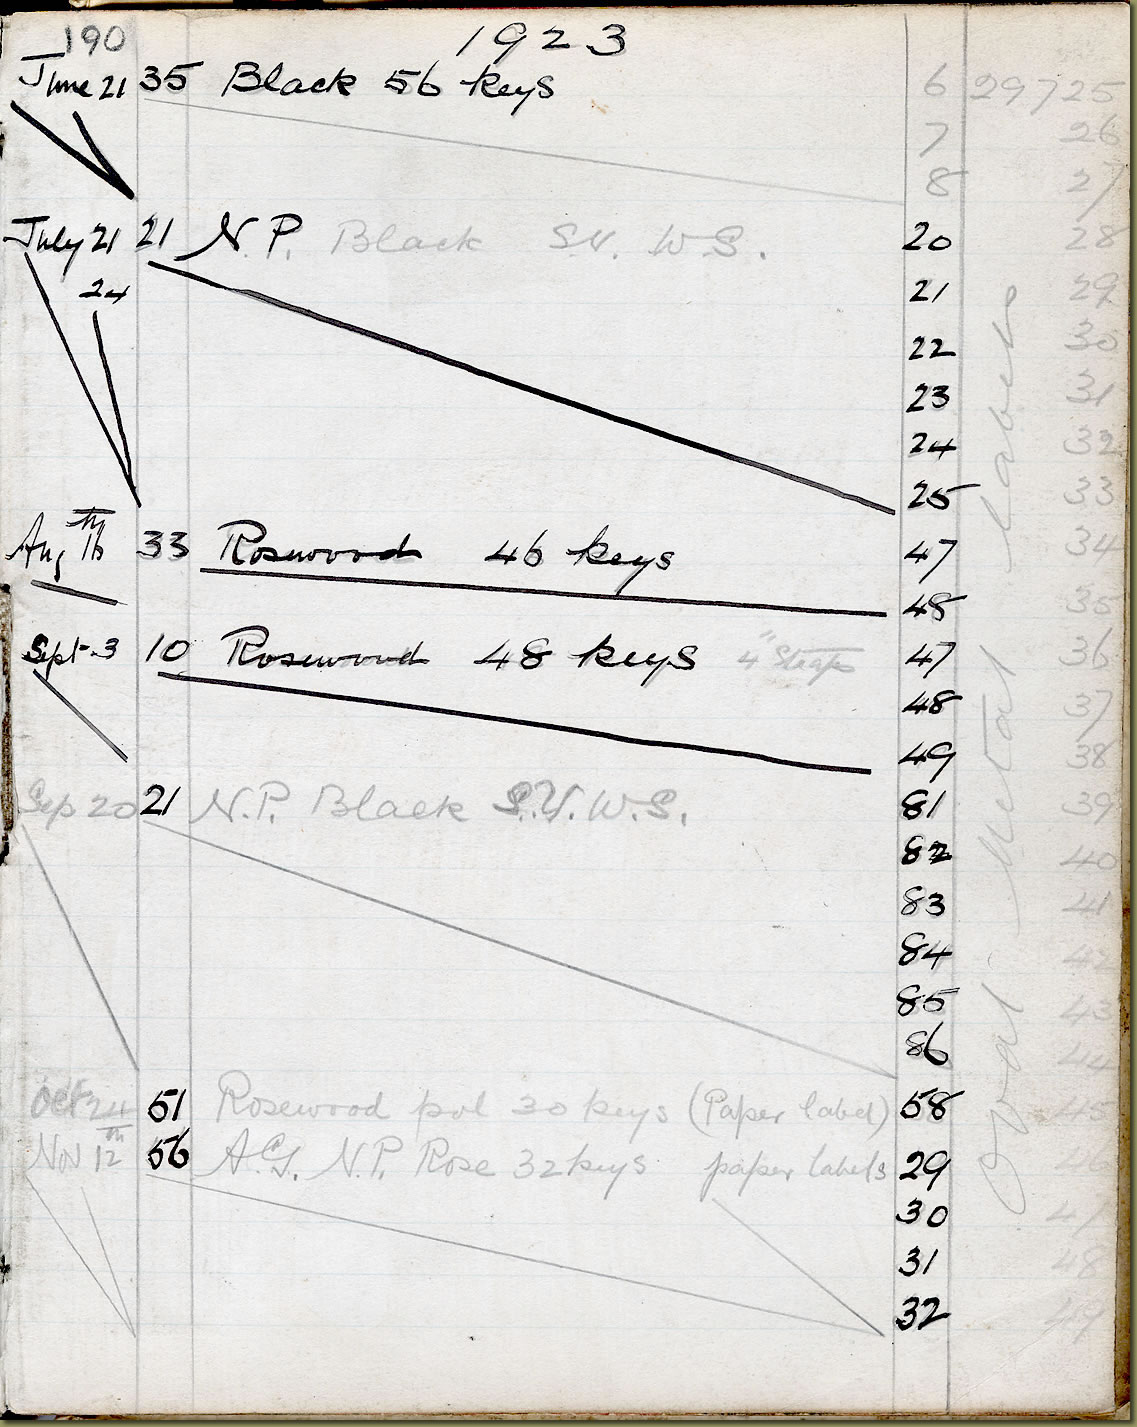 190 1923
June 21 35 Black 56 keys 6 29725
7 26
8 27
July 21 21 N.P. Black S.V. W.S. 20 28
24 21 29
22 30
23 31
24 32
25 33
Aug 16th 33 Rosewood 46 keys 47 34
48 35
Sept 3 10 Rosewood 48 keys 4" Straps 47 36
48 37
49 38
Sep 20 21 N.P. Black S.V. W.S. 81 39
82 40
83 41
84 42
85 43
86 44
Oct 24 51 Rosewood pol 30 keys (Paper label) 58 45
Nov 12th 56 A.G. N.P. Rose 32 keys paper labels 29 46
30 47
31 48
32 49
Oval Metal labels